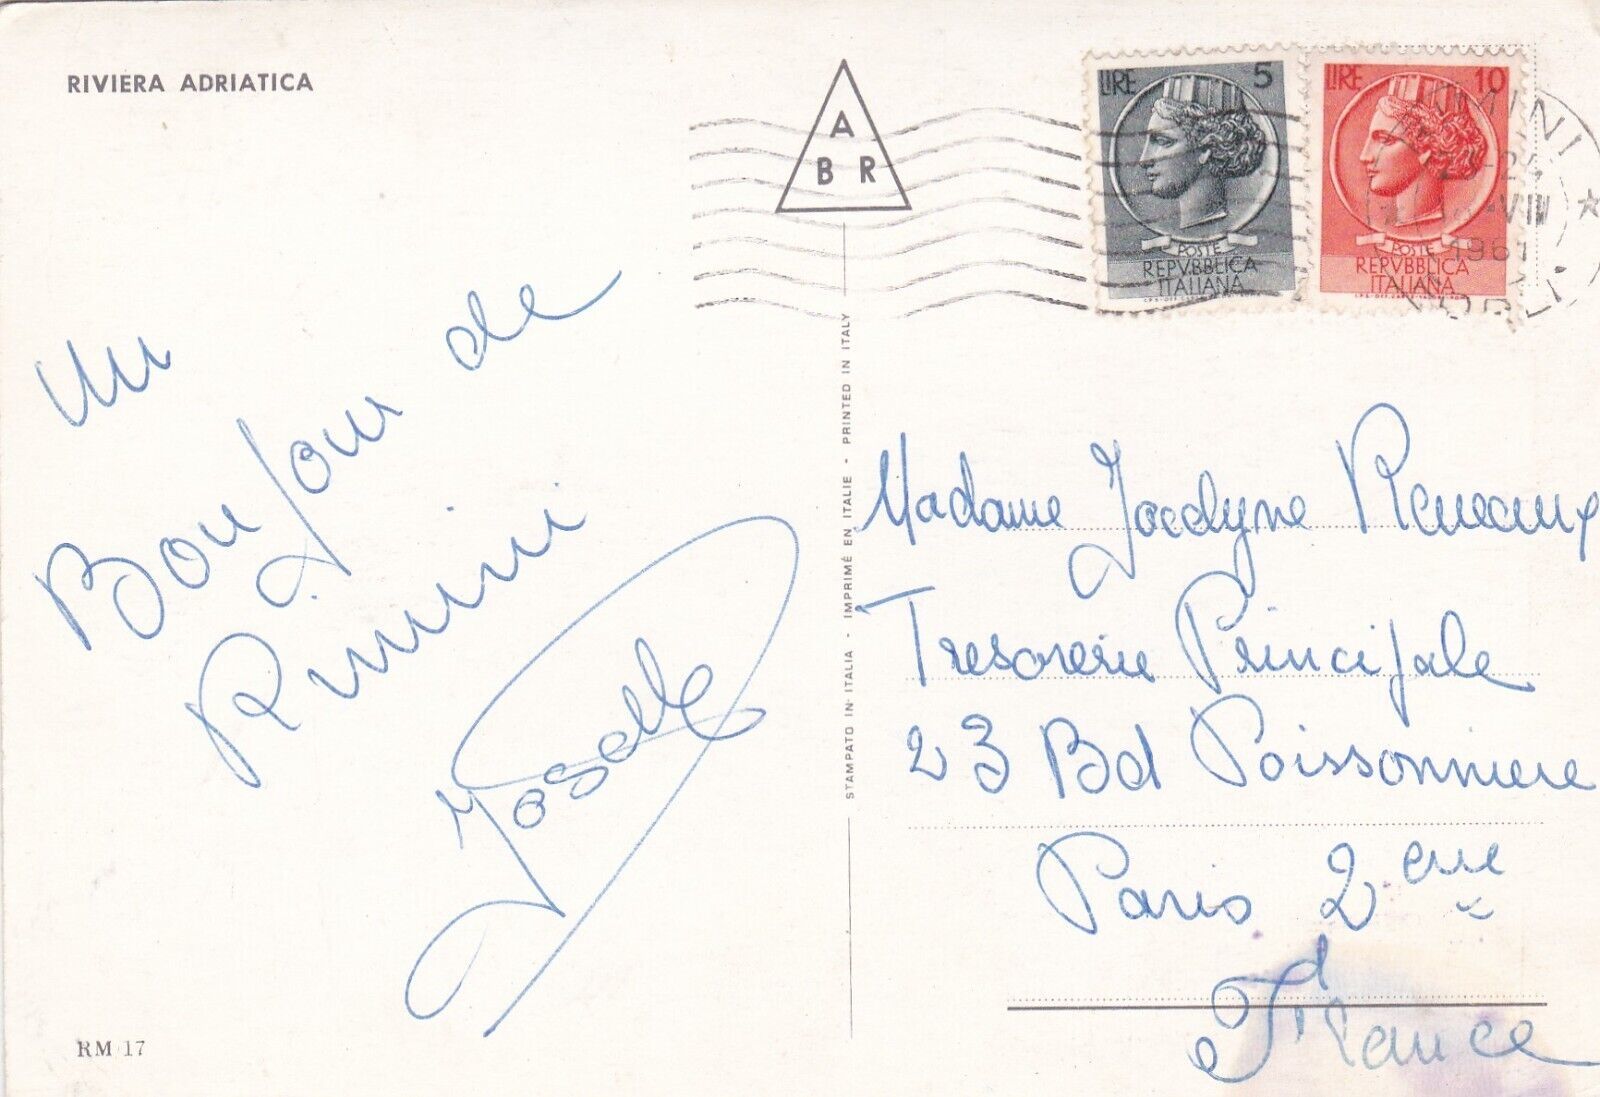 RIVIERA ADRIATICA
A
B R
LIRE 5
POSTE
REPVBBLICA
ITALIANA
LIRE 10
POSTE
REPVBBLICA
ITALIANA
1961
Un
Bonjour de
Rimini
Josette
STAMPATO IN ITALIA - IMPRIMÉ EN ITALIE - PRINTED IN ITALY
Madame Jocelyne Reneaux
Tresorerie Principale
23 Bd Poissonniere
Paris 2eme
France
RM 17